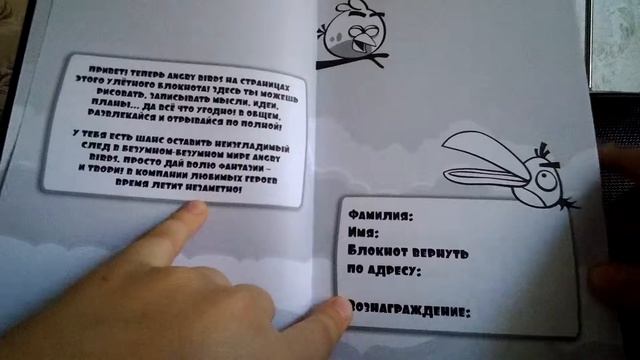 ПРИВЕТ! ТЕПЕРЬ ANGRY BIRDS НА СТРАНИЦАХ
ЭТОГО УЛЁТНОГО БЛОКНОТА! ЗДЕСЬ ТЫ МОЖЕШЬ
РИСОВАТЬ, ЗАПИСЫВАТЬ МЫСЛИ, ИДЕИ,
ПЛАНЫ... ДА ВСЁ ЧТО УГОДНО! В ОБЩЕМ,
РАЗВЛЕКАЙСЯ И ОТРЫВАЙСЯ ПО ПОЛНОЙ!
У ТЕБЯ ЕСТЬ ШАНС ОСТАВИТЬ НЕИЗГЛАДИМЫЙ
СЛЕД В БЕЗУМНОМ-БЕЗУМНОМ МИРЕ ANGRY
BIRDS. ПРОСТО ДАЙ ВОЛЮ ФАНТАЗИИ –
И ТВОРИ! В КОМПАНИИ ЛЮБИМЫХ ГЕРОЕВ
ВРЕМЯ ЛЕТИТ НЕЗАМЕТНО!
ФАМИЛИЯ:
ИМЯ:
БЛОКНОТ ВЕРНУТЬ
ПО АДРЕСУ:
ВОЗНАГРАЖДЕНИЕ: